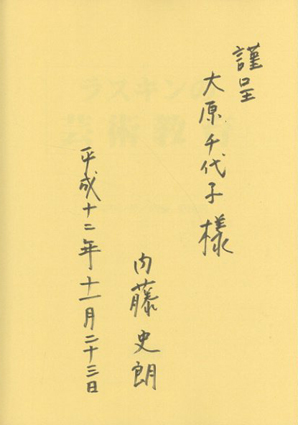 謹呈
大原千代子様
内藤史朗
平成十二年十一月二十三日
ラスキンの
芸術教育